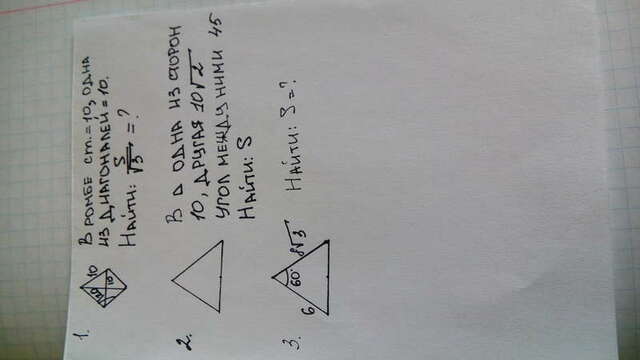 1.
10
10
В РОМБЕ СТ.=10, ОДНА
ИЗ ДИАГОНАЛЕЙ=10.
НАЙТИ: S/√3 = ?
2.
В △ ОДНА ИЗ СТОРОН
10, ДРУГАЯ 10√2
УГОЛ МЕЖДУ НИМИ 45
НАЙТИ: S
3.
6
60°
8√3
НАЙТИ: S=?